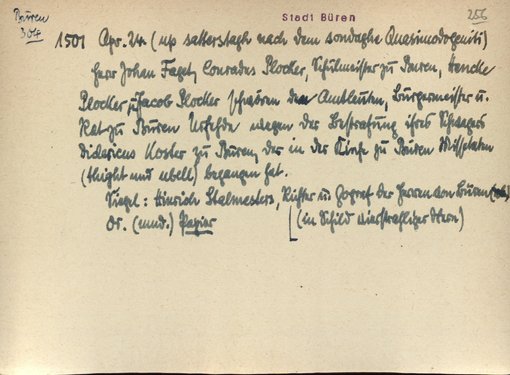 Büren
304
Stadt Büren
256
1501 Apr. 24. (up satterstagh nach dem sondaghe Quasimodogeniti)
Herr Johan Faget, Conradus Plocker, Schulmeister zu Büren, Hencke
Plocker u. Jacob Plocker schwören den Amtleuten, Bürgermeister u.
Rat zu Büren Urfehde wegen der Bestrafung ihres Schwagers
Didericus Koster zu Büren, der in der Kirche zu Büren Missetaten
(thight und ubell) begangen hat.
Siegel: Hinrich Stalmesters, Richter u. Gograf der Herren von Büren
Or. (mnd.) Papier (in Schild vierstrahliger Stern)